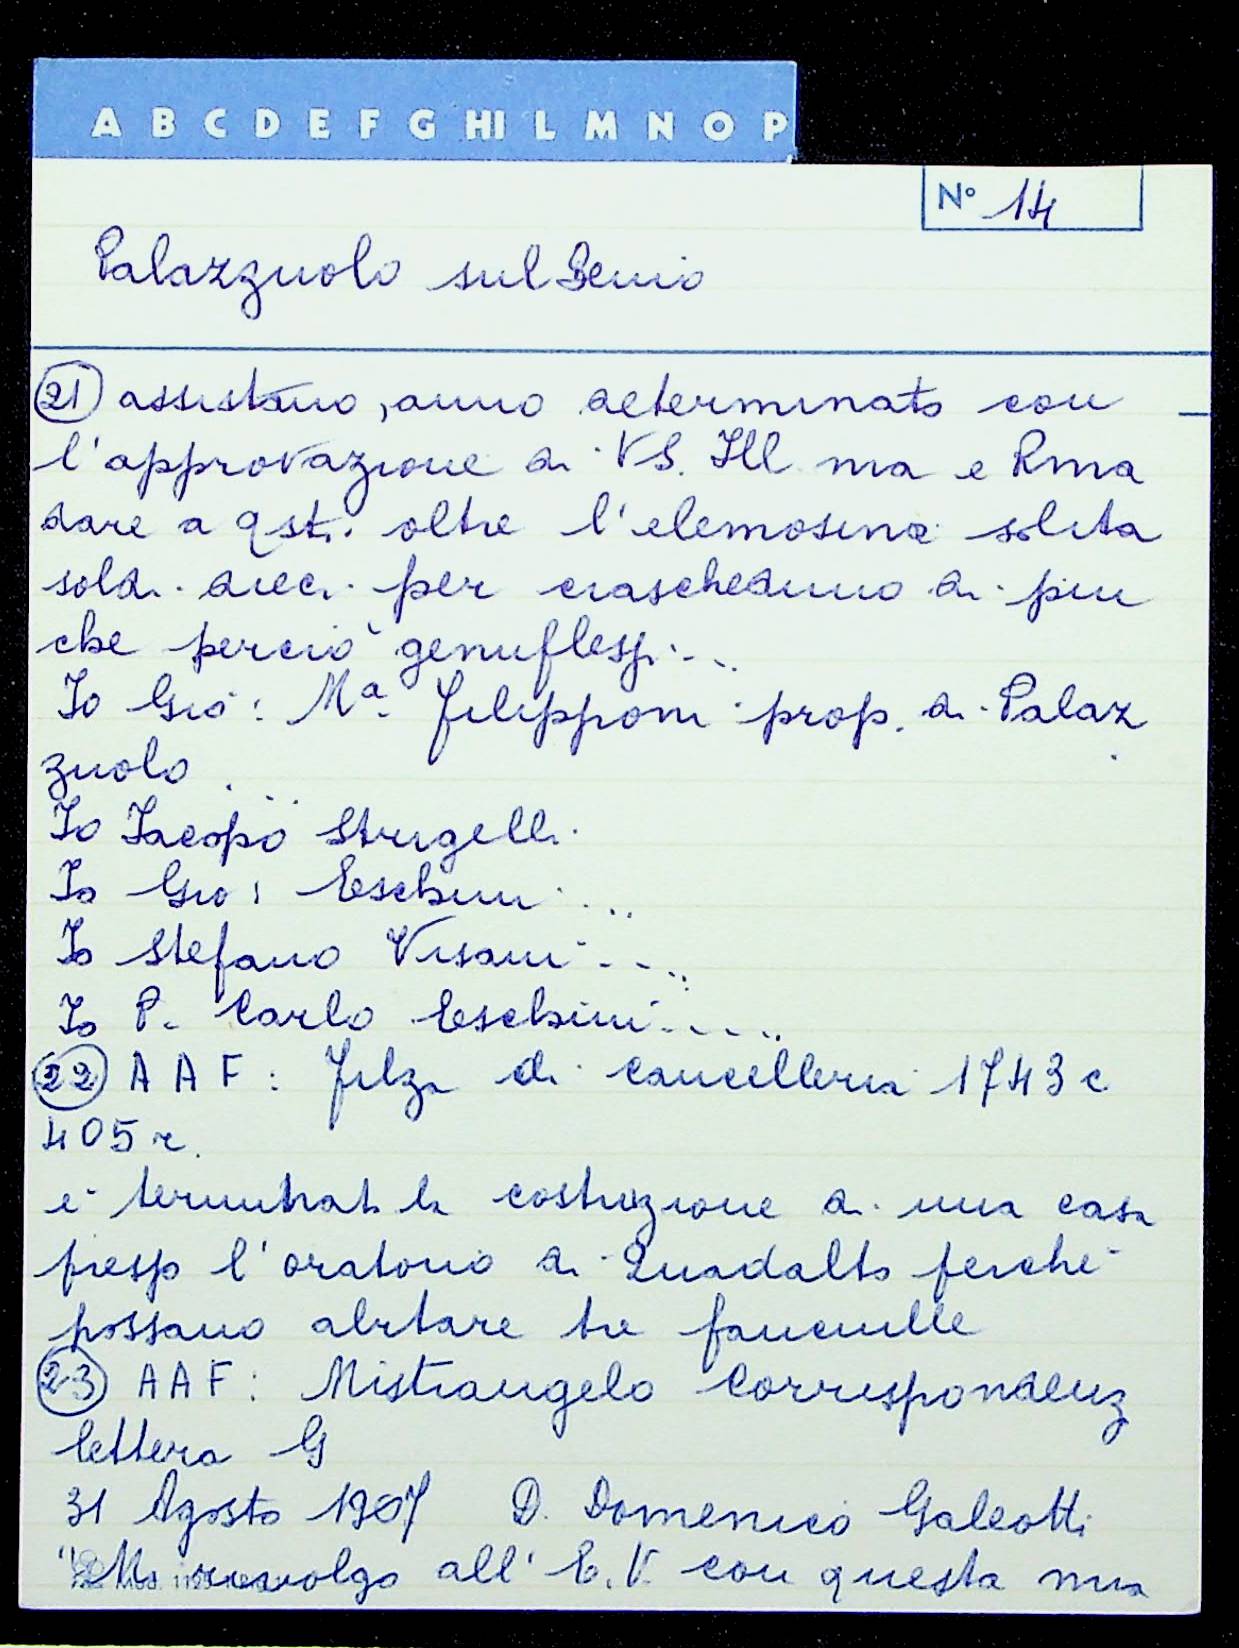 A B C D E F G HI L M N O P
N° 14
Palazzuolo sul Senio
21 assistano, anno determinato con
l'approvazione di VS. Ill ma e Rma
dare a qsti oltre l'elemosina solita
soldi dieci per ciascheduno di piu
che perciò genuflessi...
Io Gio: Ma. Filipponi prop. di Palaz
zuolo
Io Iacopo Strigelli
Io Gio: Eschini ...
Io Stefano Visani ....
Io P. Carlo Eschini .....
22 A A F : Filza di cancelleria 1743 c
405 r.
è la costruzione di una casa
presso l'oratorio di Quadalto perché
possano abitare tre fanciulle
23 A A F : Mistrangelo Corrispondenz
lettera G
31 Agosto 1907 D. Domenico Galeotti
"Mi rivolgo all' E.V. con questa mia